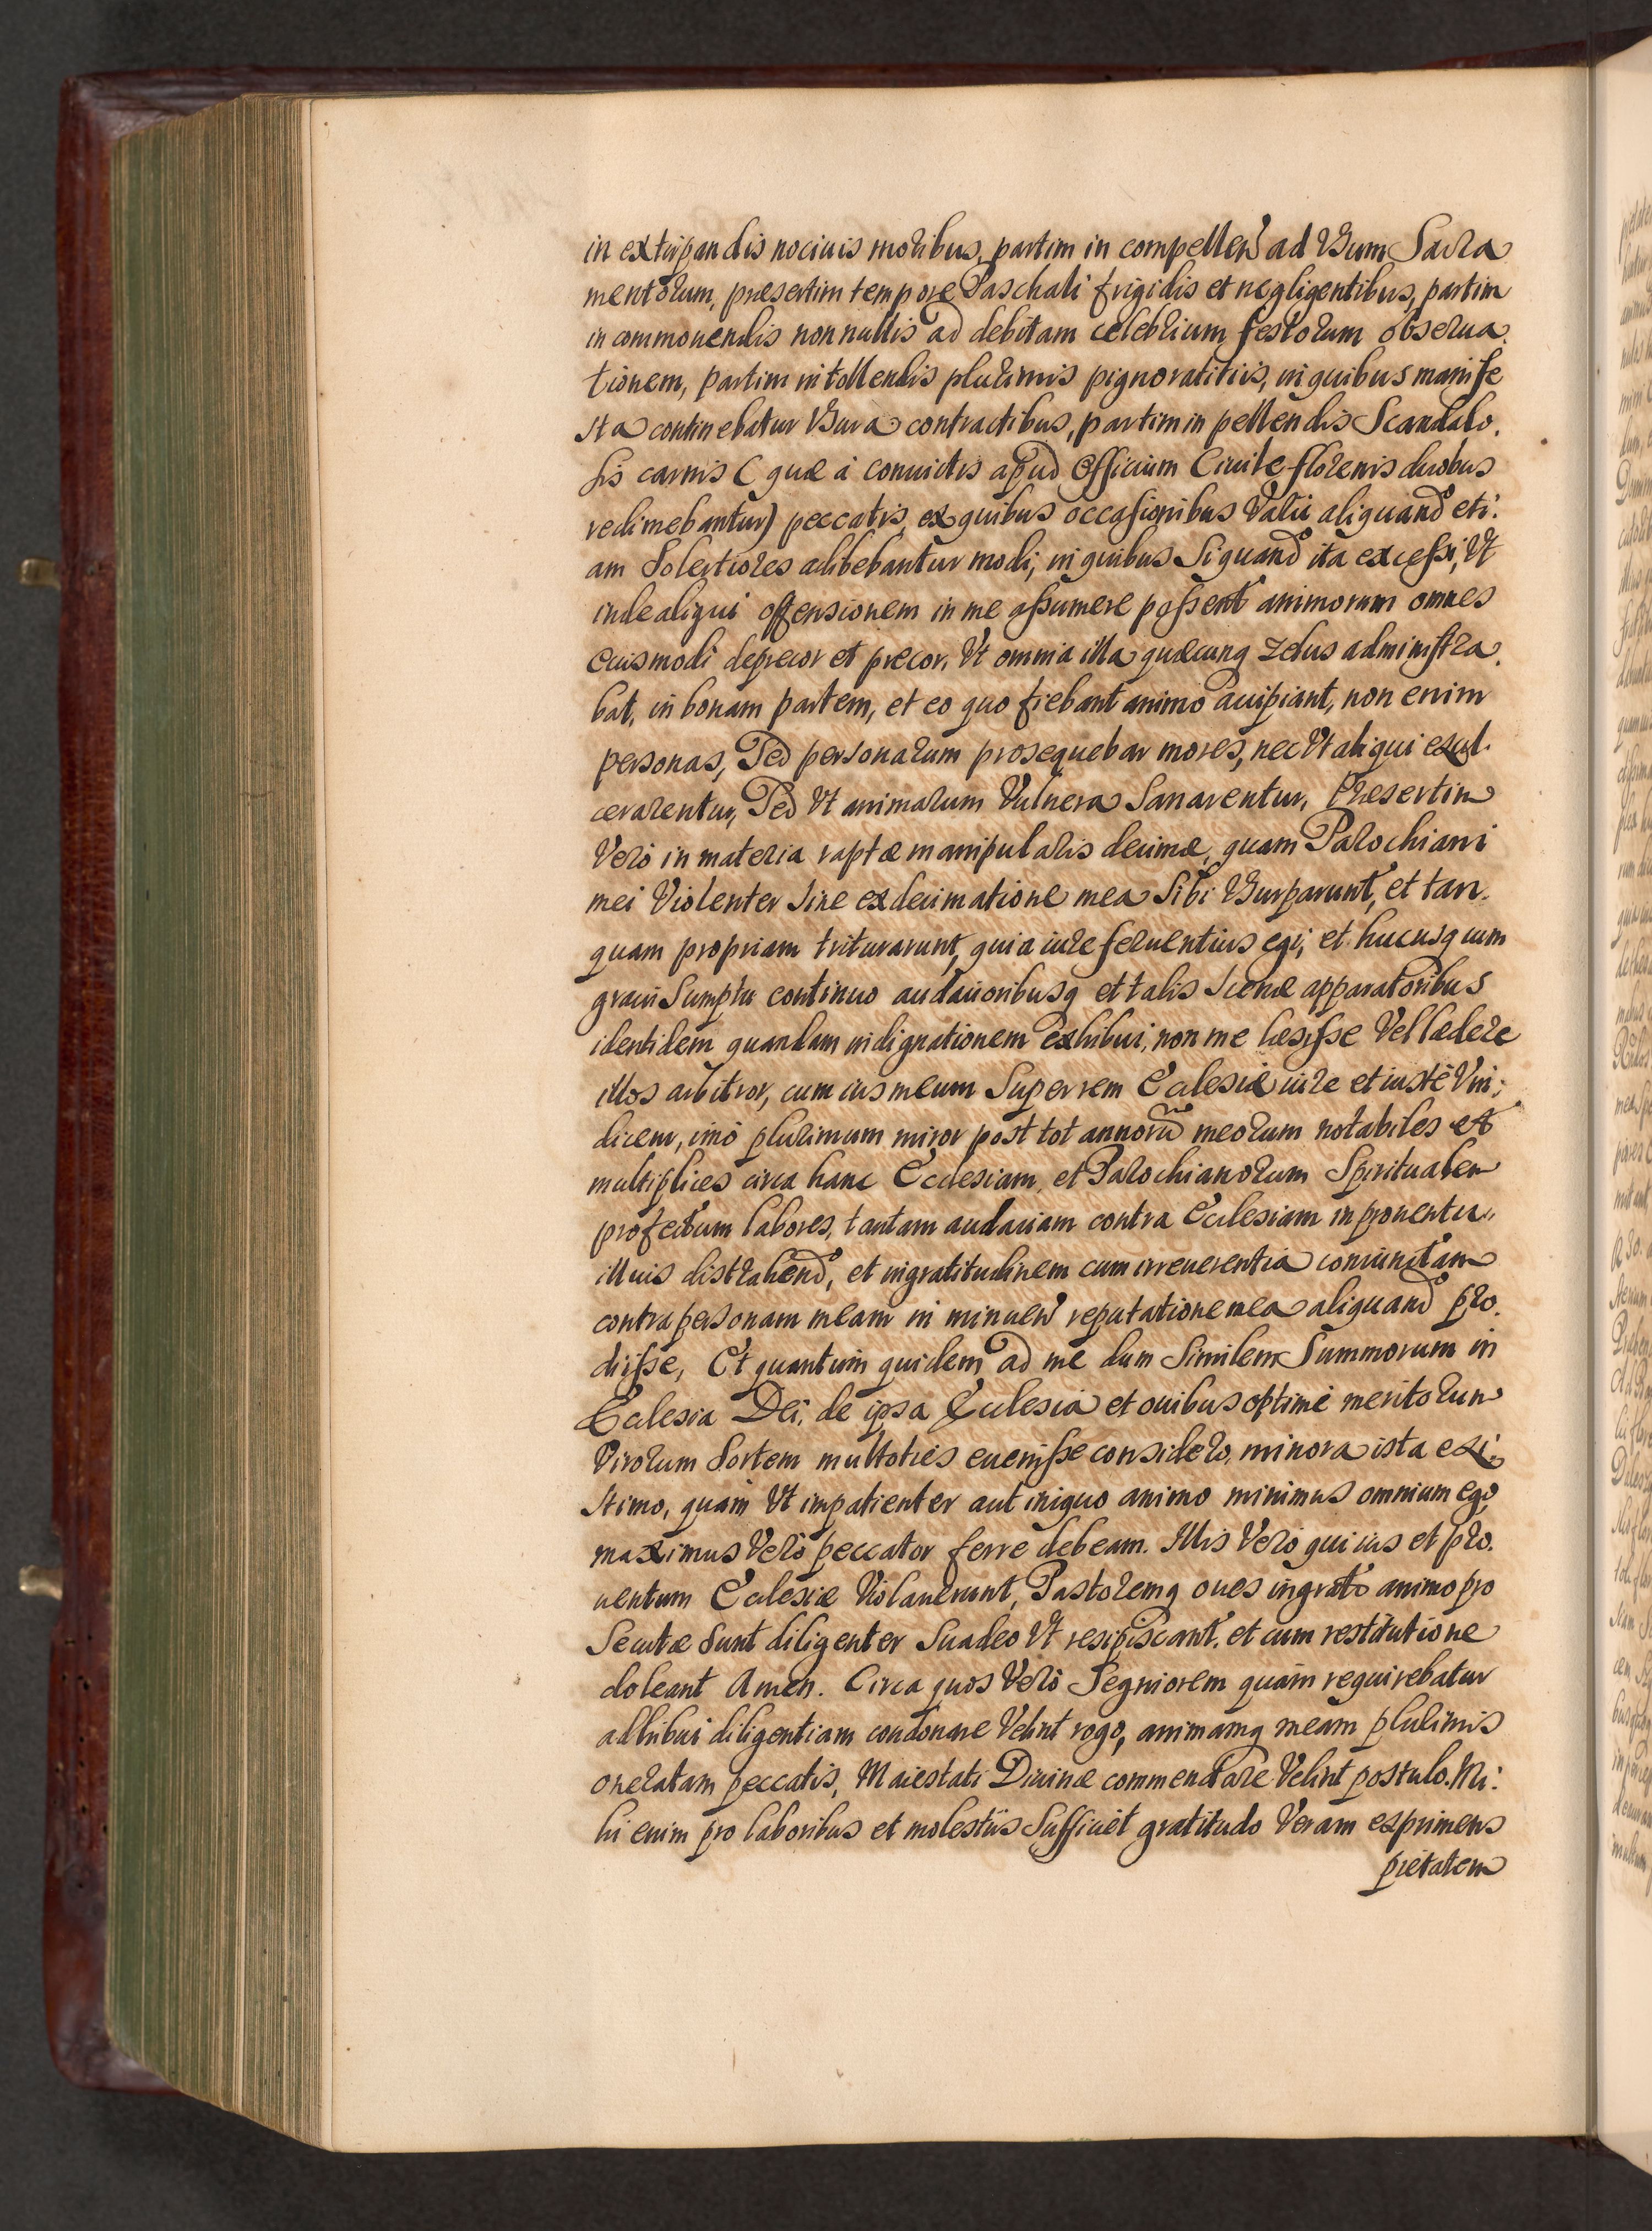 in extirpandis nociuis moribus, partim in compellend ad Vsum Sacra
mentorum, præsertim tempore Paschali frigidis et negligentibus, partim
in commouendis nonnullis ad debitam celebrium festorum obserua.
tionem, partim in tollendis plurimis pignoratitiis, in quibus manife
sta continebatur Vsura contractibus, partim in pellendis Scandalo.
sis carnis (quæ à conuictis apud Officium Ciuile florenis duobus
redimebantur) peccatis, ex quibus occasionibus Varii aliquand eti:
am Solertiores adibebantur modi, in quibus Siquand ita excessi, Vt
inde aliqui offensionem in me assumere possent animorum omnes
eiusmodi deprecor et precor, Vt omnia illa quæcunq zelus administra.
bat, in bonam partem, et eo quo fiebant animo accipiant, non enim
personas, Sed personarum prosequebar mores, nec Vt aliqui exul.
cerarentur, Sed Vt animarum Vulnera Sanarentur, Præsertim
Verò in materia raptæ manipularis decimæ, quam Parochiani
mei Violenter sine exdecimatione mea Sibi Vsurparunt, et tan.
quam propriam triturarunt, quia iure feruentius egi, et hucusq cum
graui Sumptu continuo audacioribusq et talis Scenæ apparatoribus
identidem quandam indignationem exhibui, non me læsisse Vel lædere
illos arbitror, cum ius meum Super rem Ecclesiæ iure et iustè Vin:
dicem, imò plurimum miror post tot annorū meorum notabiles et
multiplices circa hanc Ecclesiam, et Parochianorum Spiritualem
profectum labores, tantam audaciam contra Ecclesiam in prouentu
illius distrahend, et ingratitudinem cum irreuerentia coniunctam
contra personam meam in minuend reputatione mea aliquand pro.
diisse, Et quantum quidem ad me dum Similem Summorum in
Ecclesia Dei, de ipsa Ecclesia et ouibus optimè meritorum
Virorum Sortem multoties euenisse considero, minora ista exi:
stimo, quàm Vt impatienter aut iniquo animo minimus omnium ego,
maximus Verò peccator ferre debeam. Illis Verò qui ius et pro.
uentum Ecclesiæ Violauerunt, Pastoremq oues ingrato animo pro
Secutæ Sunt diligenter Suadeo Vt resipiscant, et cum restitutione
doleant Amen. Circa quos Verò Segniorem quàm requirebatur
adhibui diligentiam condonare Velint rogo, animamq meam plurimis
oneratam peccatis, Maiestati Diuinæ commendare Velint postulo. Mi:
hi enim pro laboribus et molestiis Sufficiet gratitudo Veram exprimens
pietatem